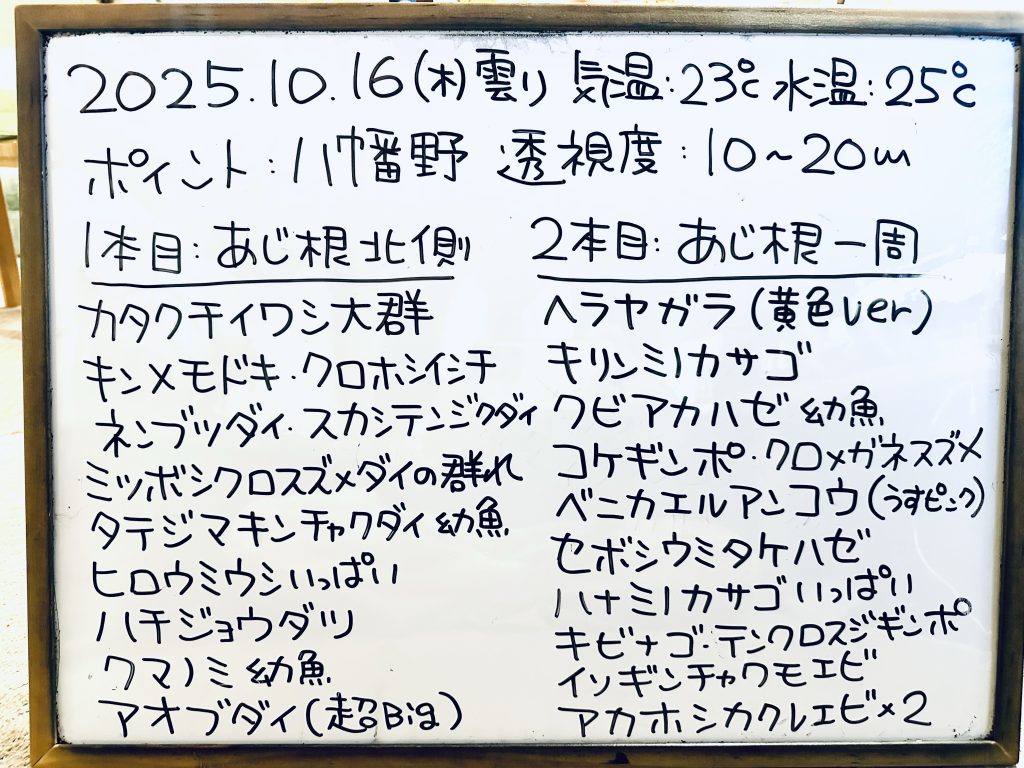 2025.10.16(木)曇り 気温:23℃ 水温:25℃
ポイント:八幡野 透視度:10~20m
1本目:あじ根北側
カタクチイワシ大群
キンメモドキ・クロホシイシモチ
ネンブツダイ・スカシテンジクダイ
ミツボシクロスズメダイの群れ
タテジマキンチャクダイ幼魚
ヒロウミウシいっぱい
ハチジョウダツ
クマノミ幼魚
アオブダイ(超Big)
2本目:あじ根一周
ヘラヤガラ(黄色ver)
キリンミノカサゴ
クビアカハゼ幼魚
コケギンポ・クロメガネスズメ
ベニカエルアンコウ(うすピンク)
セボシウミタケハゼ
ハナミノカサゴいっぱい
キビナゴ・テンクロスジギンポ
イソギンチャクモエビ
アカホシカクレエビ×2